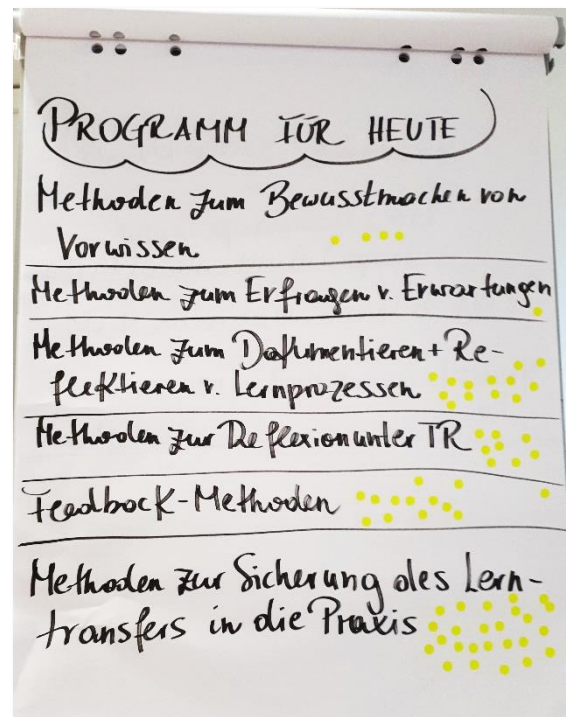 PROGRAMM FÜR HEUTE
Methoden zum Bewusstmachen von
Vorwissen
Methoden zum Erfragen v. Erwartungen
Methoden zum Dokumentieren + Re-
flektieren v. Lernprozessen
Methoden zur Reflexion unter TR
Feedback-Methoden
Methoden zur Sicherung des Lern-
transfers in die Praxis